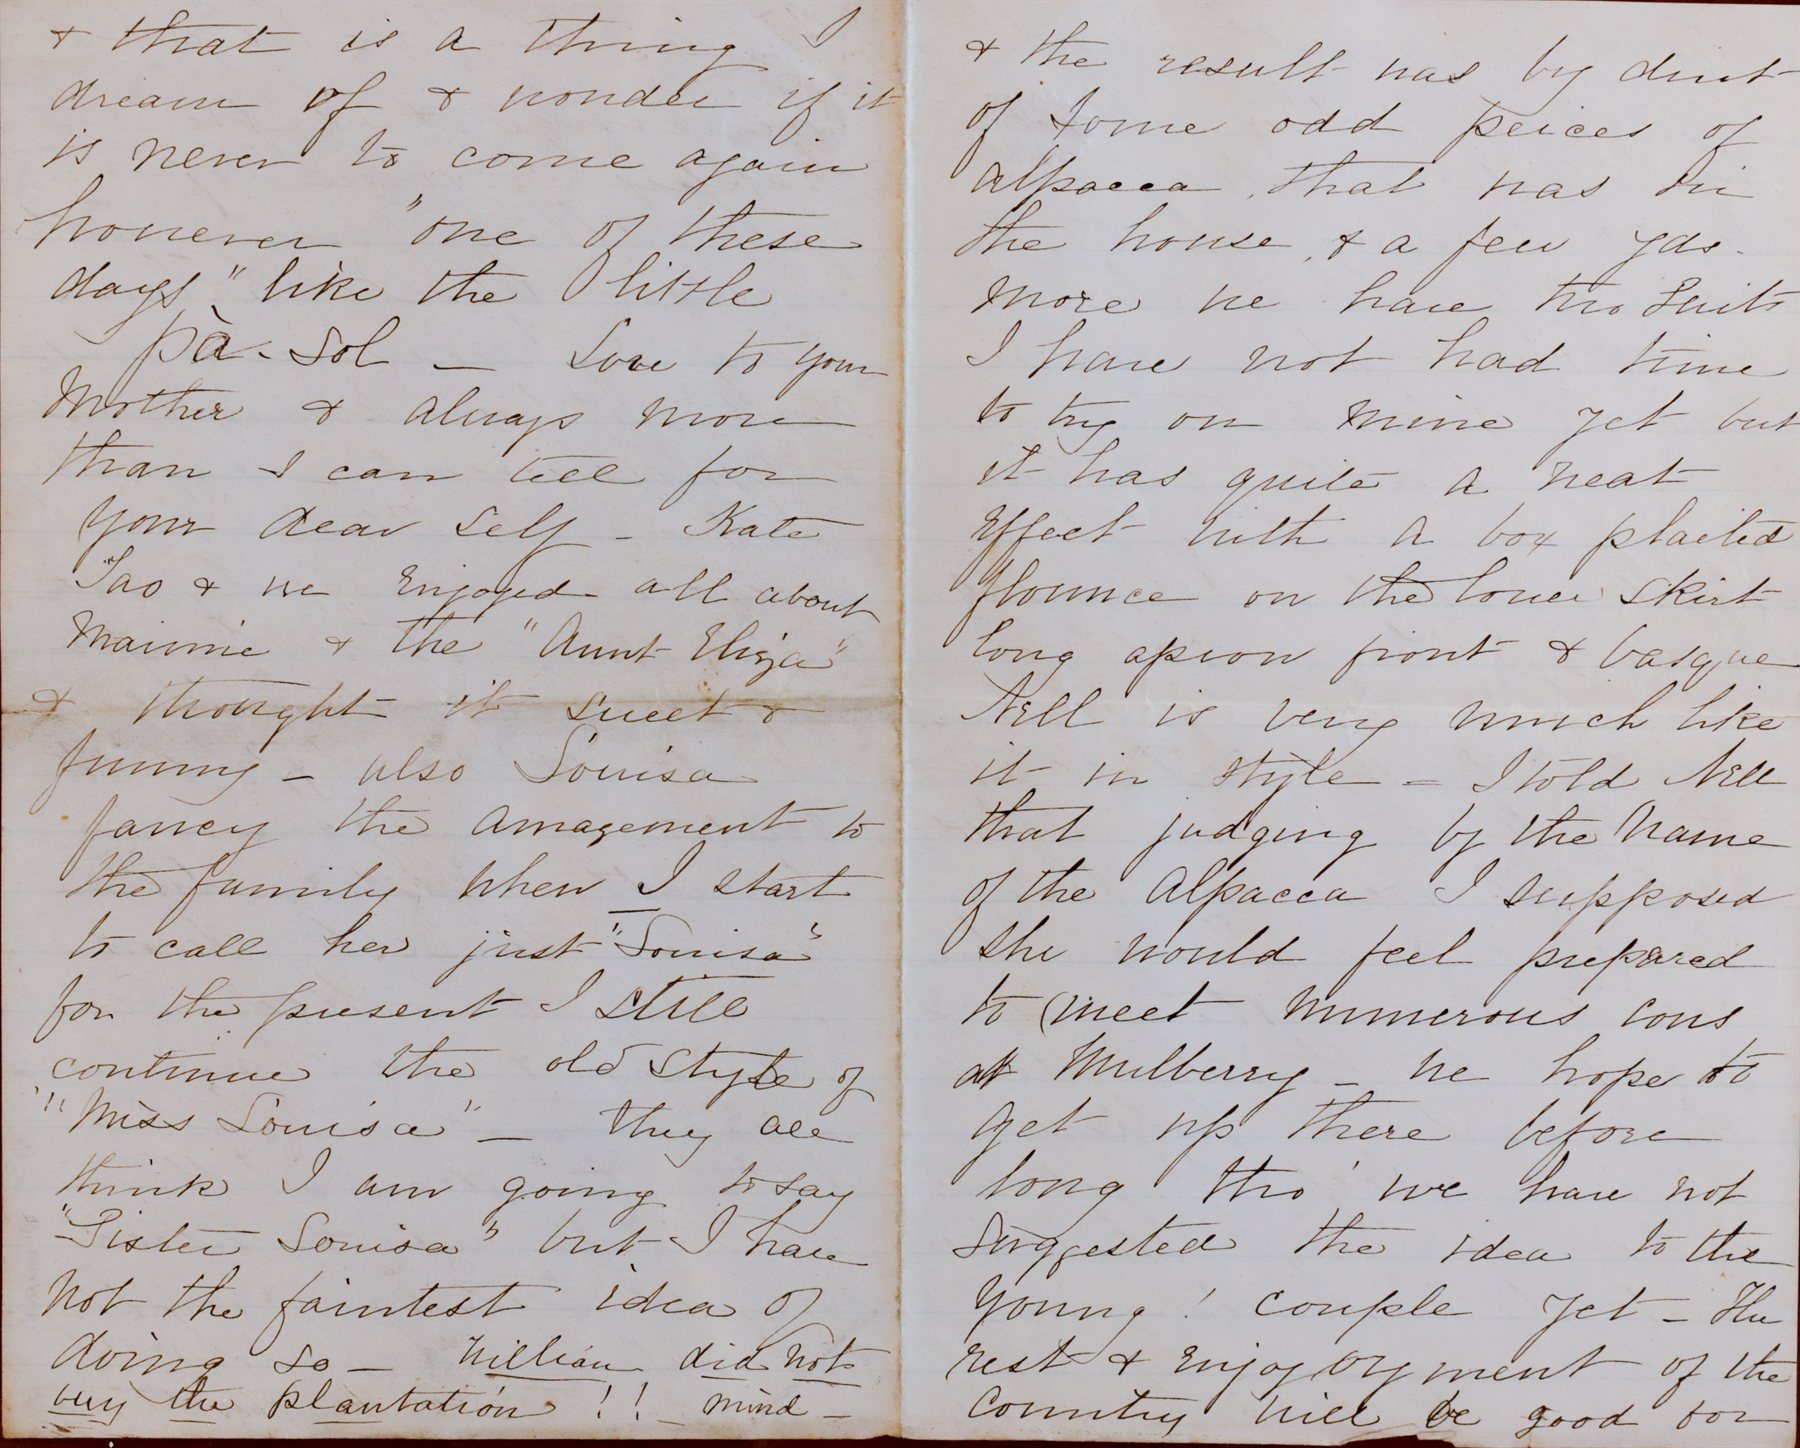 & that is a thing I
dream of & wonder if it
is never to come again
however "one of these
days", like the little
pà-sol — Love to your
Mother & always more
than I can tell for
your dear self – Kate
Tao & we enjoyed all about
Maimie & the "Aunt Eliza"
& thought it sweet &
funny – also Louisa
fancy the amazement to
the family when I start
to call her just "Louisa"
for the present I still
continue the old style of
"Miss Louisa" – they all
think I am going to say
"Sister Louisa" but I have
not the faintest idea of
doing so – William did not
buy the plantation!! – mind –
& the result was by dint
of some odd peices of
Alpacca, that was in
the house, & a few yds.
more we have two suits
I have not had time
to try on mine yet but
it has quite a neat
effect with a box plaited
flounce on the lower skirt
long apron front & basque
Nell is very much like
it in style – I told Nell
that judging by the name
of the Alpacca I supposed
she would feel prepared
to meet numerous cows
at Mulberry – we hope to
get up there before
long tho' we have not
suggested the idea to the
young! couple yet – The
rest & enjoyoyment of the
country will be good for